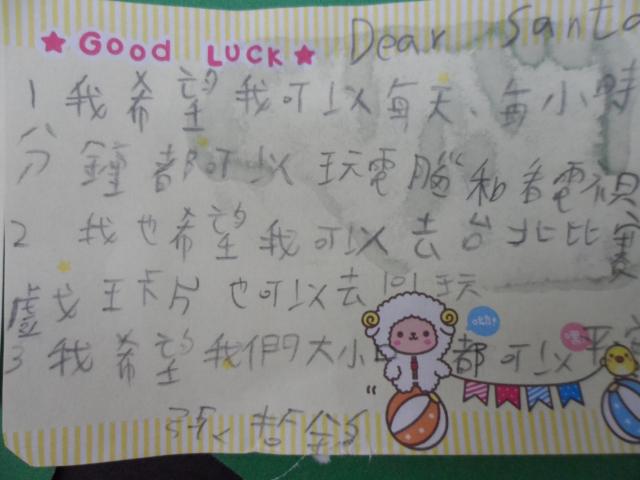 GOOD LUCK Dear Santa
1 我希望我可以每天、每小時
分鐘都可以玩電腦和看電視
2 我也希望我可以去台北比賽
戈王卡片也可以去 玩
3 我希望我們大小 都可以平安